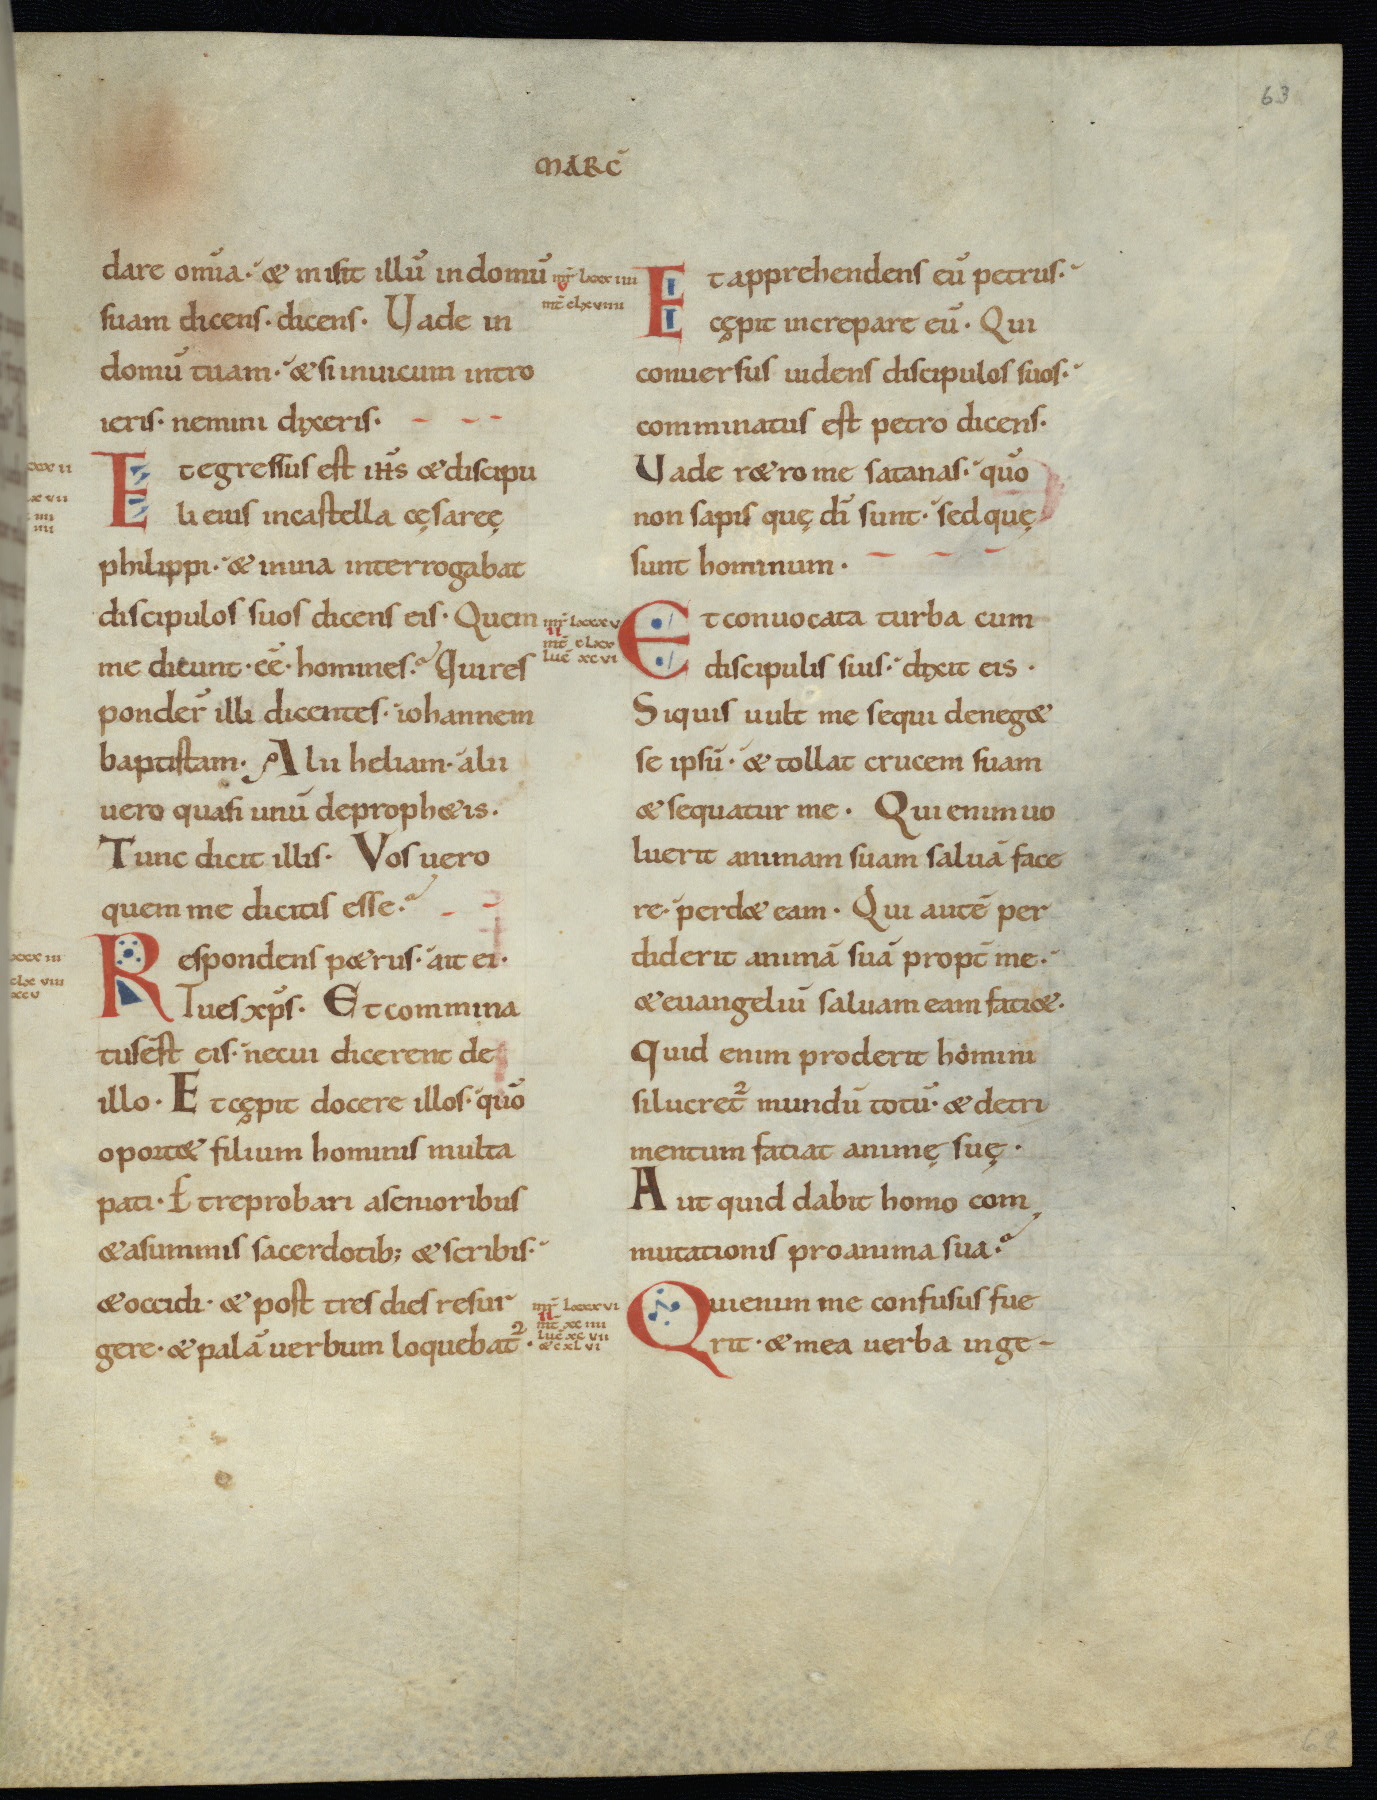 63
MARC̄
dare om̄ia· & misit illū in domū
suam dicens· dicens· Uade in
domū tuam· & si inuicum intro
ieris· nemini dixeris·
Et egressus est ih̄s & discipu
li eius in castella cęsareę
philippi· & in uia interrogabat
discipulos suos dicens eis· Quem
me dicunt· eē· homines· Qui res
ponder̄ illi dicentes· iohannem
baptistam· Alii heliam· alii
uero quasi unū de proph&is·
Tunc dicit illis· Vos uero
quem me dicitis esse·
Respondens p&rus· ait ei·
Tu es xp̄s· Et commina
tus est eis· ne cui dicerent de
illo· Et cępit docere illos· quō
oport& filium hominis multa
pati· Et reprobari a senioribus
& a summis sacerdotib; & scribis·
& occidi· & post tres dies resur
gere· & palā uerbum loquebat᷑·
mr̄ lxxxiiii
mt̄ clxviiii
Et apprehendens eū petrus·
cępit increpare eū· Qui
conuersus uidens discipulos suos·
comminatus est petro dicens·
Uade r&ro me satanas· quō
non sapis quę dī sunt· sed quę
sunt hominum·
mr̄ lxxxv
mt̄ clxx
luc̄ xcvi
Et conuocata turba cum
discipulis suis· dixit eis·
Si quis uult me sequi deneg&
se ipsū· & tollat crucem suam
& sequatur me· Qui enim uo
luerit animam suam saluā face
re· perd& eam· Qui autē per
diderit animā suā propt̄ me·
& euangeliū saluam eam faci&·
Quid enim proderit homini
si lucret᷑ mundū totū· & detri
mentum faciat animę suę·
Aut quid dabit homo com
mutationis pro anima sua·
mr̄ lxxxvi
mt̄ xciiii
luc̄ xcvii
& cxlvi
Qui enim me confusus fue
rit· & mea uerba in ge-